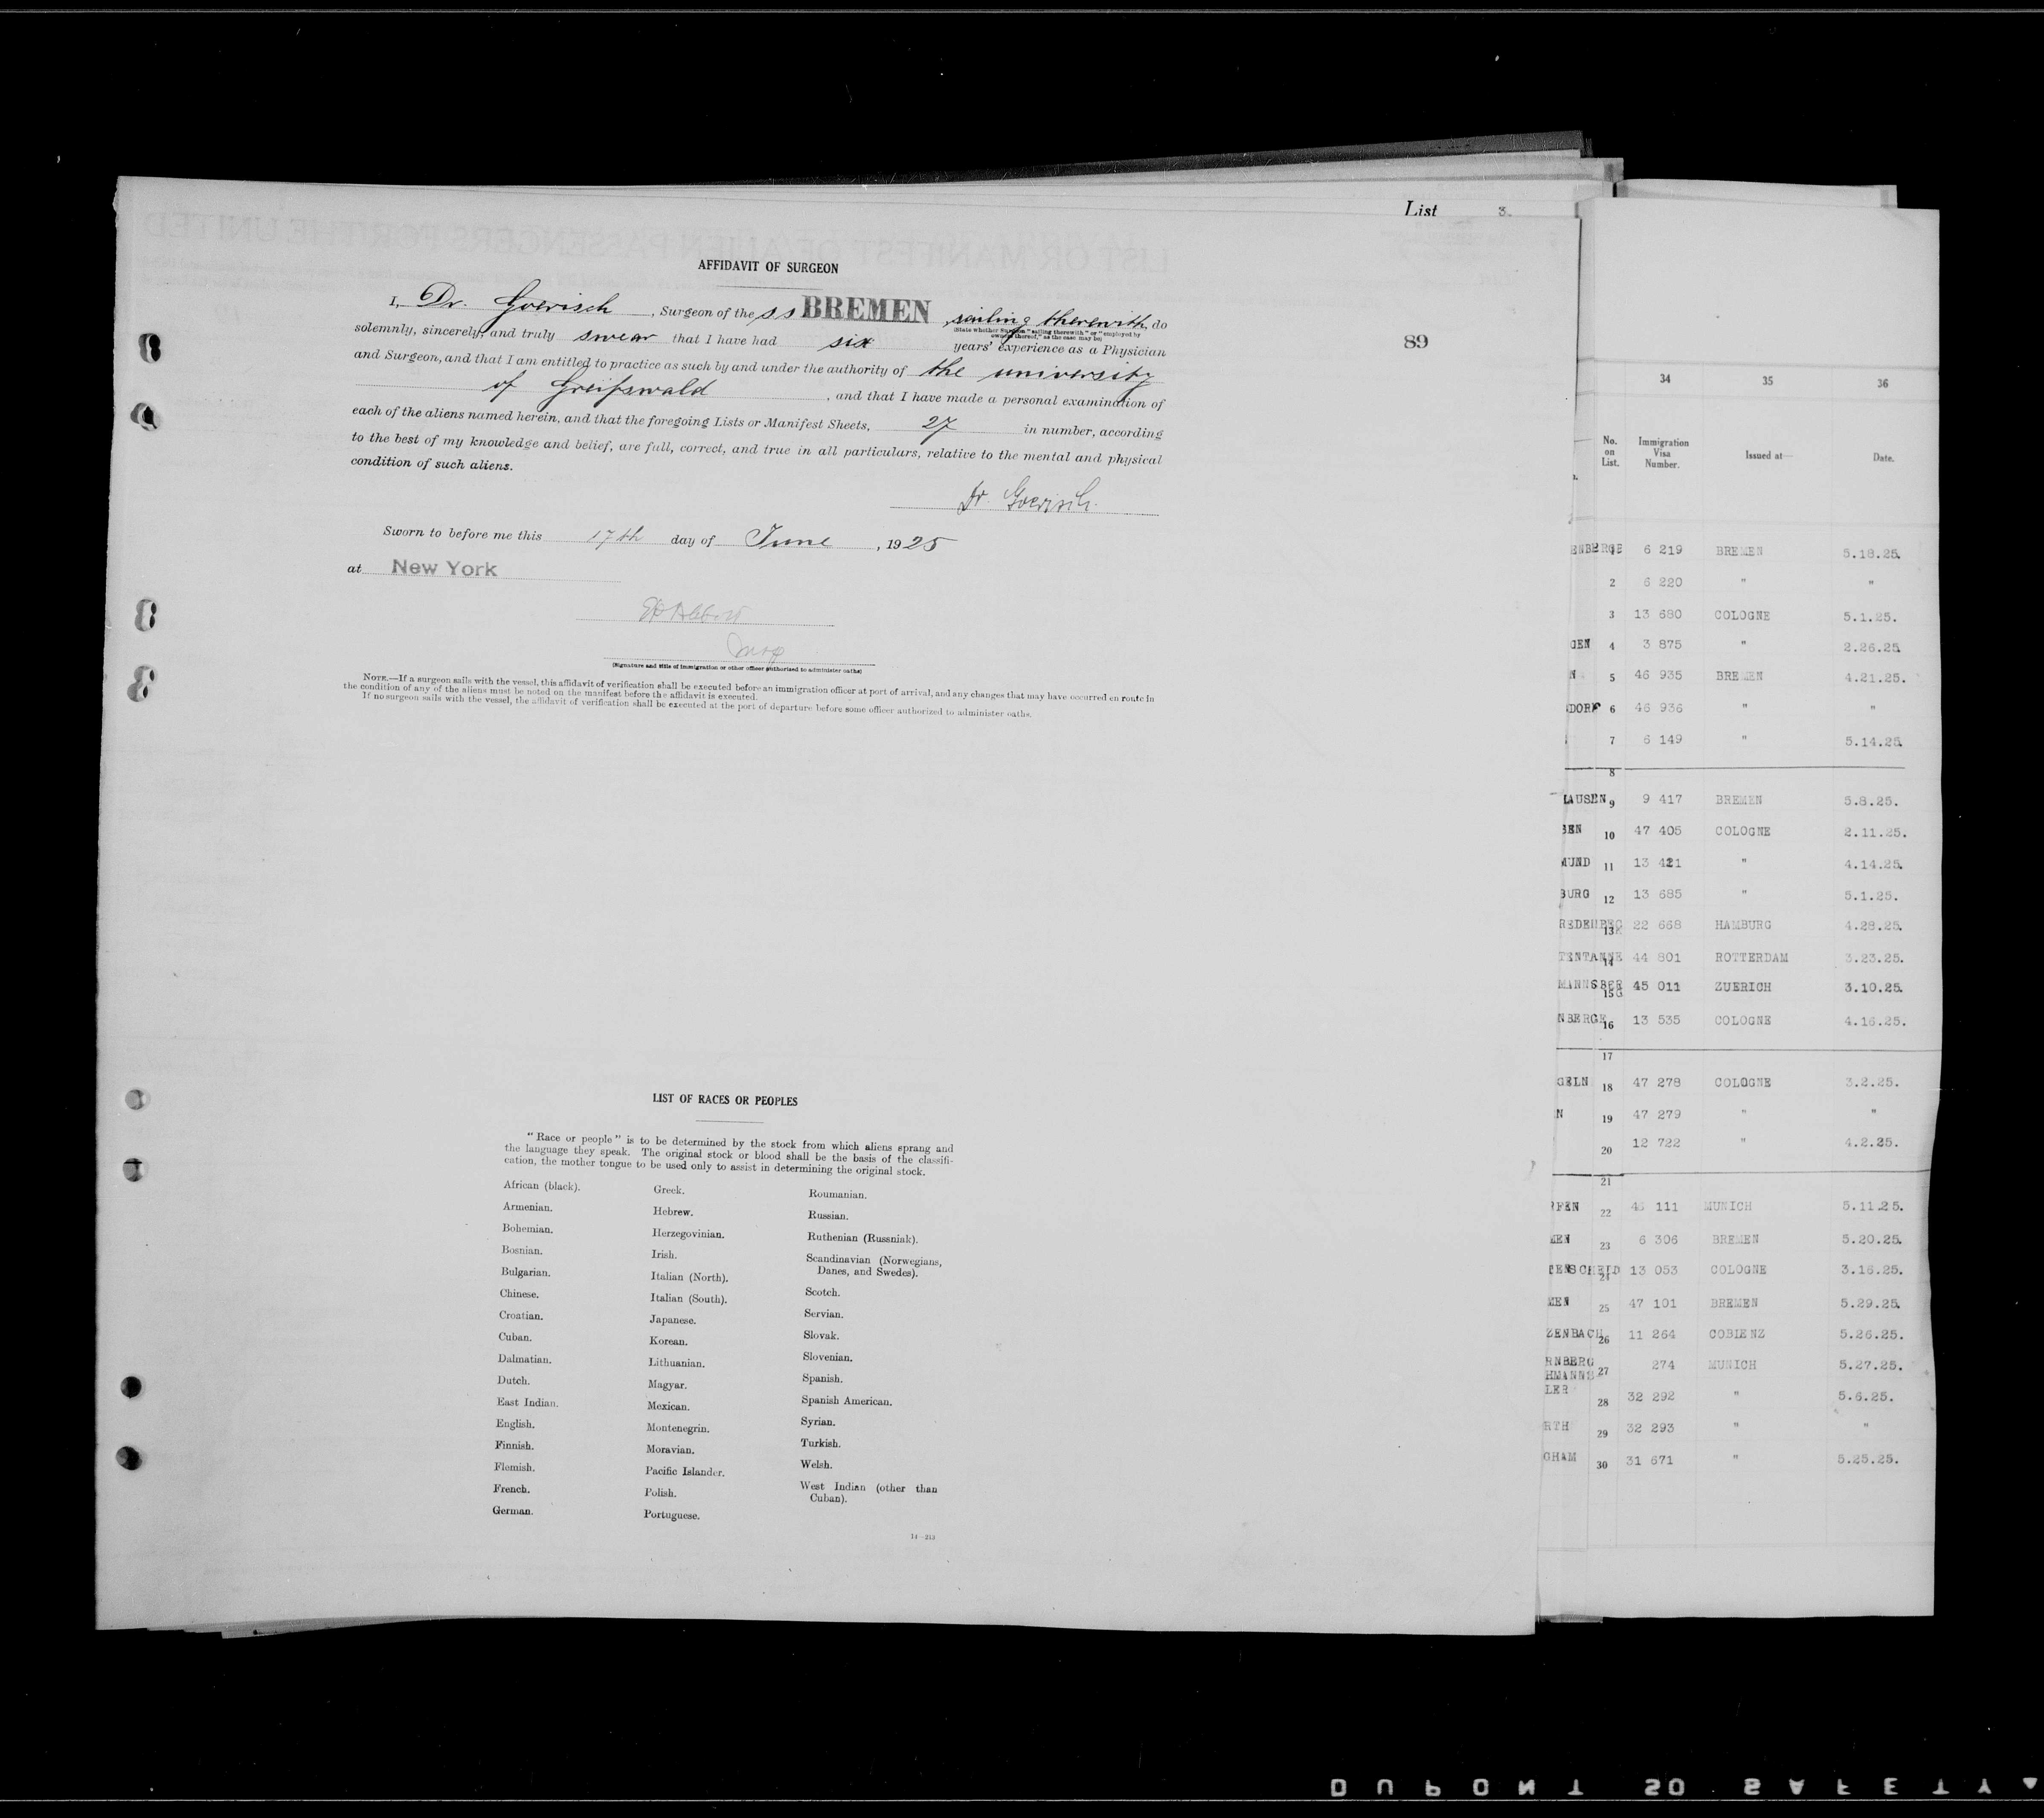 List 3.
AFFIDAVIT OF SURGEON
I, Dr. Goerisch, Surgeon of the ss BREMEN, sailing therewith, do
(State whether Surgeon "sailing therewith" or "employed by
owners thereof," as the case may be)
solemnly, sincerely, and truly swear that I have had six years' experience as a Physician
and Surgeon, and that I am entitled to practice as such by and under the authority of the university
of Greifswald, and that I have made a personal examination of
each of the aliens named herein, and that the foregoing Lists or Manifest Sheets, 27 in number, according
to the best of my knowledge and belief, are full, correct, and true in all particulars, relative to the mental and physical
condition of such aliens.
Dr. Goerisch.
Sworn to before me this 17th day of June, 1925
at New York
(Signature and title of immigration or other officer authorized to administer oaths)
NOTE.—If a surgeon sails with the vessel, this affidavit of verification shall be executed before an immigration officer at port of arrival, and any changes that may have occurred en route in
the condition of any of the aliens must be noted on the manifest before the affidavit is executed.
If no surgeon sails with the vessel, the affidavit of verification shall be executed at the port of departure before some officer authorized to administer oaths.
89
LIST OF RACES OR PEOPLES
"Race or people" is to be determined by the stock from which aliens sprang and
the language they speak. The original stock or blood shall be the basis of the classifi-
cation, the mother tongue to be used only to assist in determining the original stock.
African (black).
Armenian.
Bohemian.
Bosnian.
Bulgarian.
Chinese.
Croatian.
Cuban.
Dalmatian.
Dutch.
East Indian.
English.
Finnish.
Flemish.
French.
German.
Greek.
Hebrew.
Herzegovinian.
Irish.
Italian (North).
Italian (South).
Japanese.
Korean.
Lithuanian.
Magyar.
Mexican.
Montenegrin.
Moravian.
Pacific Islander.
Polish.
Portuguese.
Roumanian.
Russian.
Ruthenian (Russniak).
Scandinavian (Norwegians,
Danes, and Swedes).
Scotch.
Servian.
Slovak.
Slovenian.
Spanish.
Spanish American.
Syrian.
Turkish.
Welsh.
West Indian (other than
Cuban).
14—213
34 35 36
No. on List. Immigration Visa Number. Issued at— Date.
ENBERGE 1 6 219 BREMEN 5.18.25.
2 6 220 " "
3 13 680 COLOGNE 5.1.25.
GEN 4 3 875 " 2.26.25.
N 5 46 935 BREMEN 4.21.25.
DORF 6 46 936 " "
7 6 149 " 5.14.25.
8
HAUSEN 9 9 417 BREMEN 5.8.25.
BEN 10 47 405 COLOGNE 2.11.25.
MUND 11 13 421 " 4.14.25.
BURG 12 13 685 " 5.1.25.
13 22 668 HAMBURG 4.28.25.
TENTANNE 14 44 801 ROTTERDAM 3.23.25.
15 45 011 ZUERICH 3.10.25.
NBERGE 16 13 535 COLOGNE 4.16.25.
17
GELN 18 47 278 COLOGNE 3.2.25.
N 19 47 279 " "
20 12 722 " 4.2.25.
21
RFEN 22 111 MUNICH 5.11.25.
MEN 23 6 306 BREMEN 5.20.25.
TENSCHEID 24 13 053 COLOGNE 3.16.25.
MEN 25 47 101 BREMEN 5.29.25.
ZENBACH 26 11 264 COBLENZ 5.26.25.
RNBERG 27 274 MUNICH 5.27.25.
HMANNS
LER 28 32 292 " 5.6.25.
RTH 29 32 293 " "
GHAM 30 31 671 " 5.25.25.
DUPONT 50 SAFETY